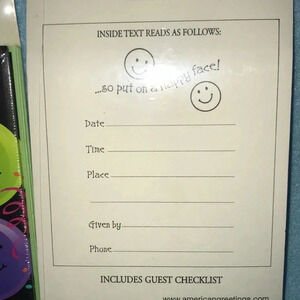 INSIDE TEXT READS AS FOLLOWS:
...so put on a happy face!
Date
Time
Place
Given by
Phone
INCLUDES GUEST CHECKLIST
www.americangreetings.com